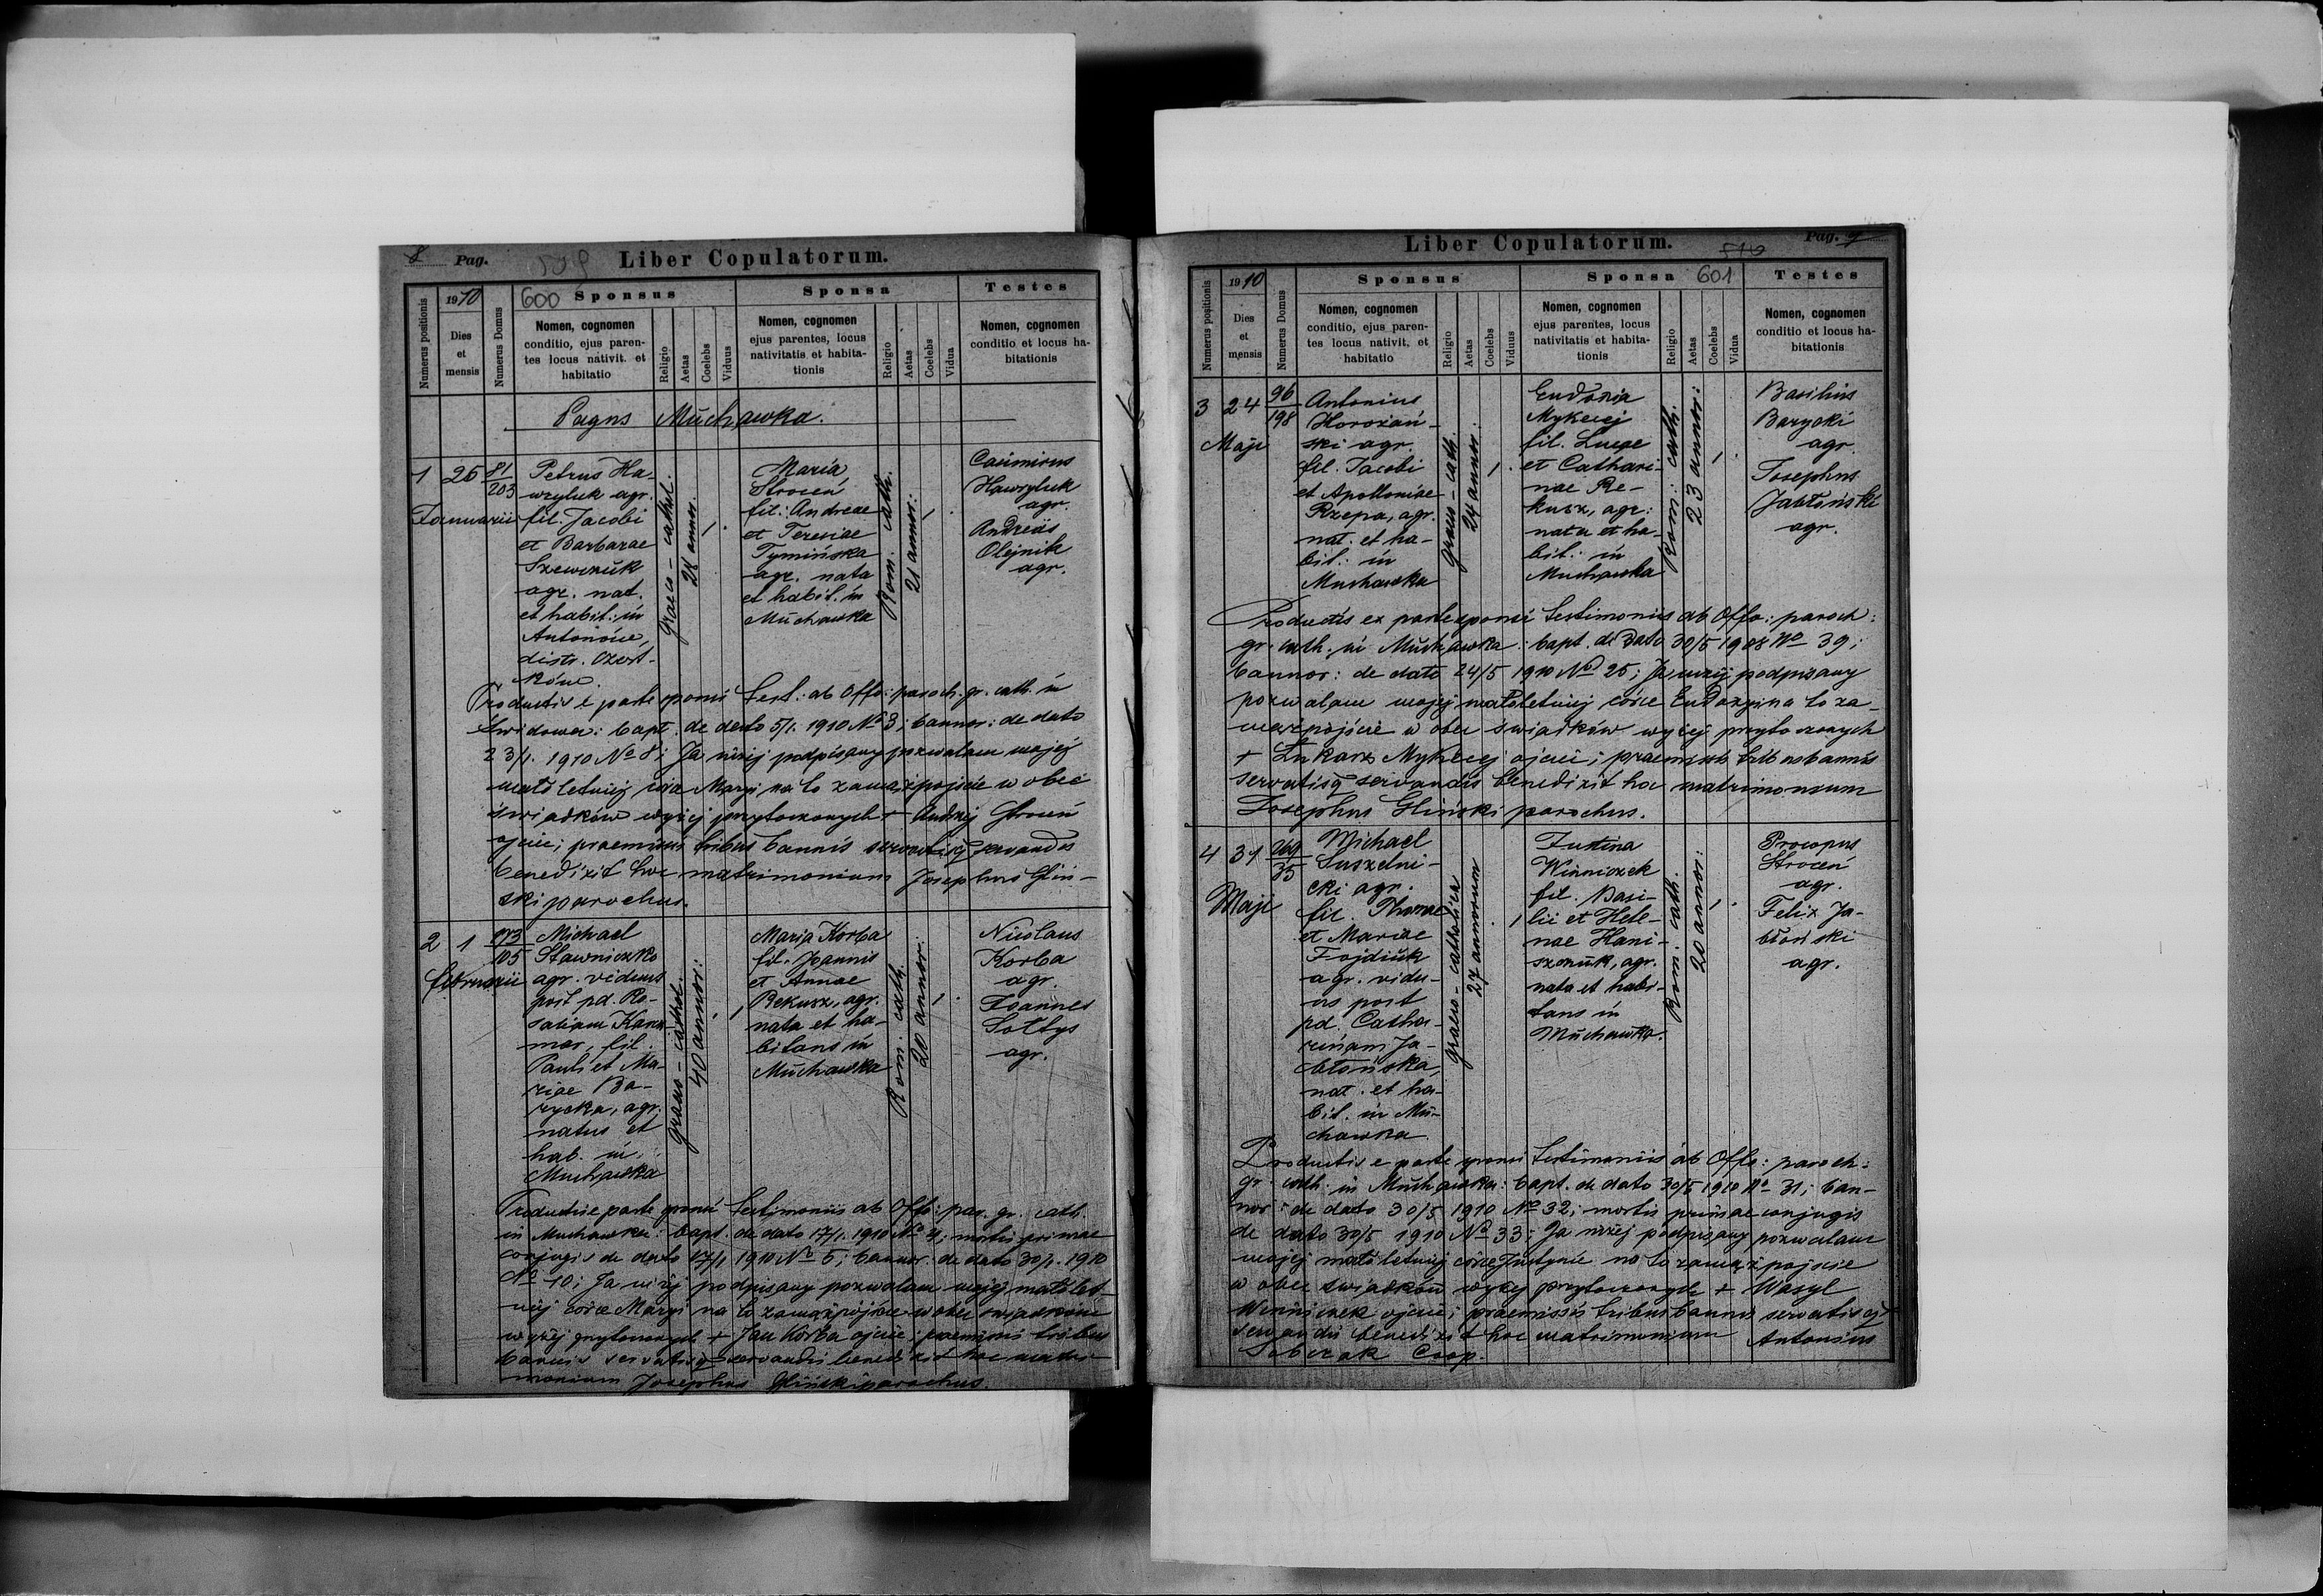 8 Pag.
Liber Copulatorum.
600
Numerus positionis
1910
Dies
et
mensis
Numerus Domus
Sponsus
Nomen, cognomen
conditio, ejus paren-
tes locus nativit. et
habitatio
Religio
Aetas
Coelebs
Viduus
Sponsa
Nomen, cognomen
ejus parentes, locus
nativitatis et habita-
tionis
Religio
Aetas
Coelebs
Vidua
Testes
Nomen, cognomen
conditio et locus ha-
bitationis
Pagus Muchawka.
1
26
Januarii
81
203
Petrus Ha-
wryluk agr.
fil. Jacobi
et Barbarae
Szewczuk
agr. nat.
et habit: in
Antonówe,
distr. Czort-
ków.
Graeco-cathol.
28 annor.
Maria
Stroceń
fil: Andreae
et Teresiae
Tymińska
agr. nata
et habit. in
Muchawka
Rom. cath.
21 annor:
Casimirus
Hawryluk
agr.
Andreas
Olejnik
agr.
Productis e parte sponsi test: ab Offo: paroch. gr. cath. in
Swidowa: bapt. de dato 5/1. 1910 No 3; bannor: de dato
23/1. 1910 No 8; Ja niżej podpisany pozwalam mojej
małoletniej córce Maryi na to zamążpójście w obec
świadków wyżej przytoczonych + Andrzej Stroceń
ojciec; praemissis tribus bannis servatisq servandis
benedixit hoc matrimonium Josephus Gliń-
ski parochus.
2
1
februarii
173
105
Michael
Stawniczko
agr. viduus
post pd. Ro-
saliam Kanz-
mar, fil.
Pauli et Ma-
riae Ba-
rycka, agr.
natus et
hab. in
Muchawka
graeco-cathol.
40 annor:
Maria Korba
fil. Joannis
et Annae
Rekusz, agr.
nata et ha-
bitans in
Muchawka
Rom. cath.
20 annor:
Nicolaus
Korba
agr.
Joannes
Sołtys
agr.
Productis e parte sponsi testimoniis ab Offo: par. gr. cath.
in Muchawka: bapt. de dato 17/1. 1910 No 4; mortis primae
conjugis de dato 17/1 1910 No 5; bannor. de dato 30/1. 1910
No 10; Ja niżej podpisany pozwalam mojej małolet-
niej córce Maryi na to zamążpójście w obec świadków
wyżej przytoczonych + Jan Korba ojciec; praemissis tribus
bannis servatisq servandis benedixit hoc matri-
monium Josephus Gliński parochus.
Liber Copulatorum.
Pag. 9
601
Numerus positionis
1910
Dies
et
mensis
Numerus Domus
Sponsus
Nomen, cognomen
conditio, ejus paren-
tes locus nativit. et
habitatio
Religio
Aetas
Coelebs
Viduus
Sponsa
Nomen, cognomen
ejus parentes, locus
nativitatis et habita-
tionis
Religio
Aetas
Coelebs
Vidua
Testes
Nomen, cognomen
conditio et locus ha-
bitationis
3
24
Maji
96
198
Antonius
Horożań-
ski agr.
fil. Jacobi
et Apolloniae
Rzepa, agr.
nat. et ha-
bit: in
Muchawka
graeco-cath.
24 annor:
Eudoxia
Mykecej
fil. Lucae
et Cathari-
nae Re-
kusz, agr:
nata et ha-
bit: in
Muchawka
Rom: cath.
23 annor:
Basilius
Barycki
agr.
Josephus
Jabłoński
agr.
Productis ex parte sponsi testimoniis ab Offo: paroch:
gr. cath. in Muchawka: bapt. de dato 30/5 1908 No 39;
bannor: de dato 24/5 1910 No 25; Ja niżej podpisany
pozwalam mojej małoletniej córce Eudoxyi na to za-
mążpójście w obec świadków wyżej przytoczonych
+ Łukasz Mykecej ojciec; praemissis tribus bannis
servatisq servandis benedixit hoc matrimonium
Josephus Gliński parochus.
4
31
Maji
269
35
Michael
Suszelni-
cki agr.
fil. Thomae
et Mariae
Fajdiuk
agr. vidu-
us post
pd. Catha-
rinam Ja-
błońska,
nat. et ha-
bit. in Mu-
chawka.
graeco-catholica
27 annorum
Justina
Winniczek
fil. Basi-
lii et Hele-
nae Hani-
szczuk, agr.
nata et habi-
tans in
Muchawka.
Rom. cath.
20 annor:
Procopus
Stroceń
agr.
Felix Ja-
błoński
agr.
Productis e parte sponsi testimoniis ab Offo: paroch:
gr. cath. in Muchawka: bapt. de dato 30/5 1910 No 31; ban-
nor: de dato 30/5 1910 No 32; mortis primae conjugis
de dato 30/5 1910 No 33; Ja niżej podpisany pozwalam
mojej małoletniej córce Justynie na to zamążpójście
w obec świadków wyżej przytoczonych + Wasyl
Winniczek ojciec; praemissis tribus bannis servatisq
servandis benedixit hoc matrimonium Antonius
Sobczak Coop.